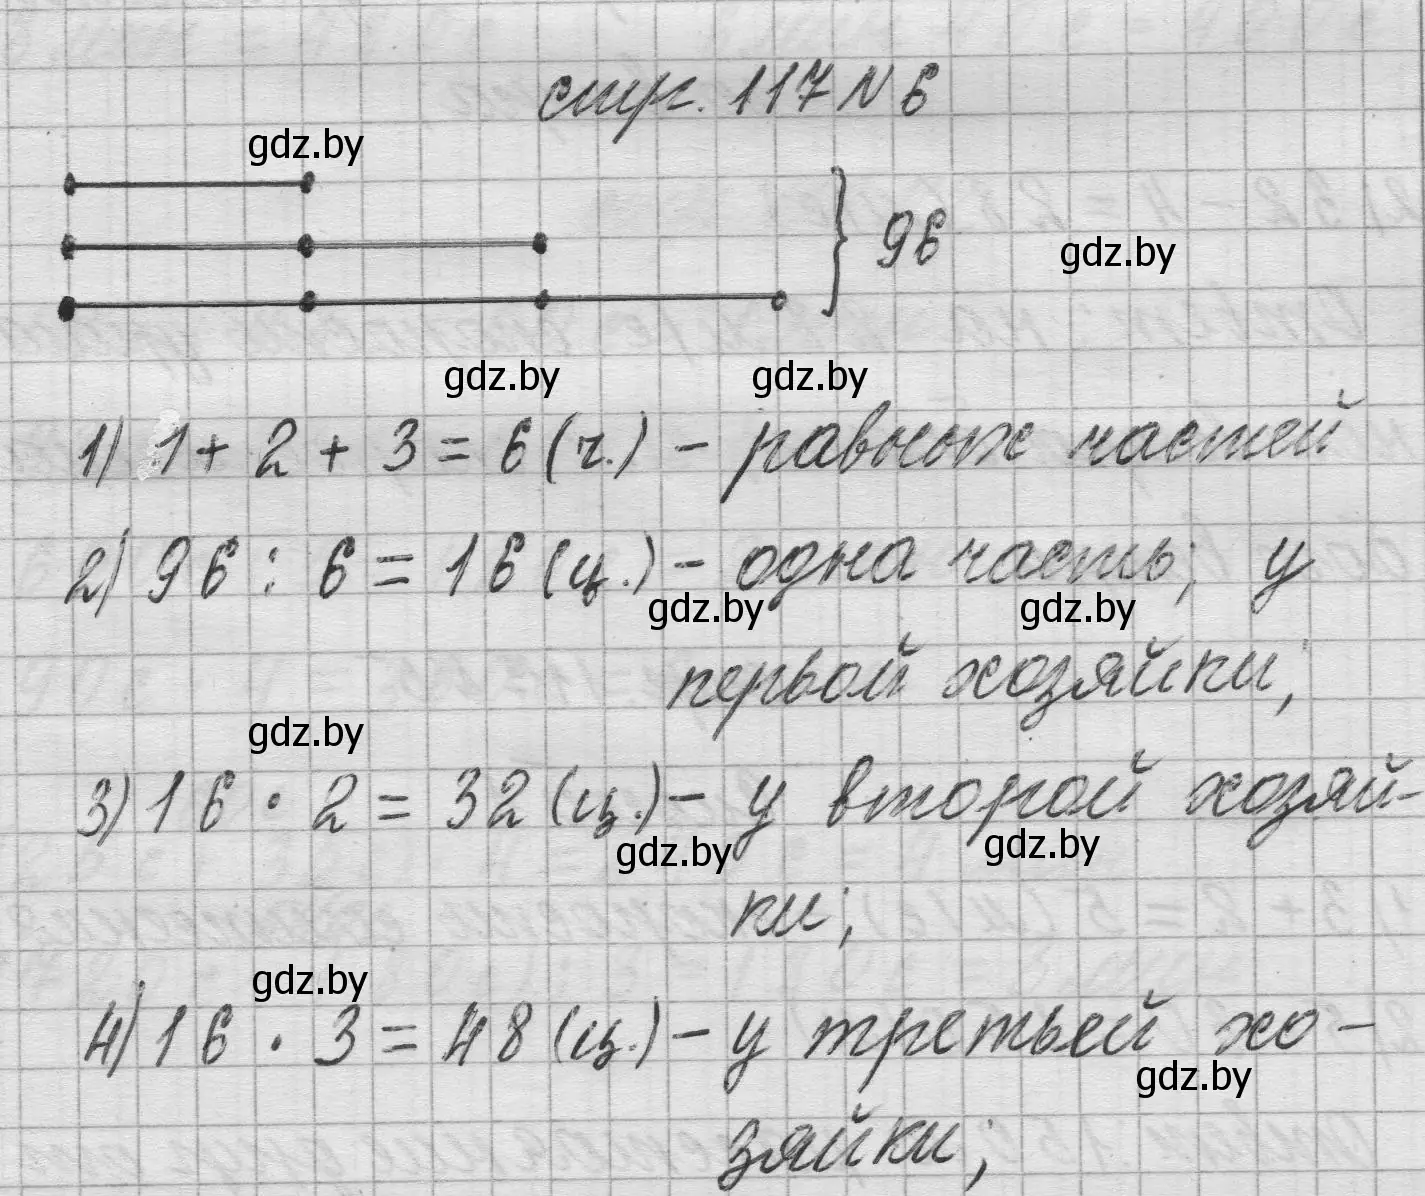 стр. 117 N 6
gdz.by
} 96
gdz.by
gdz.by
gdz.by
1) 1 + 2 + 3 = 6 (ч.) - равных частей
2) 96 : 6 = 16 (ц.) - одна часть; у
gdz.by
gdz.by
первой хозяйки;
gdz.by
3) 16 · 2 = 32 (ц.) - у второй хозяй-
gdz.by
gdz.by
ки;
gdz.by
4) 16 · 3 = 48 (ц.) - у третьей хо-
gdz.by
зяйки;